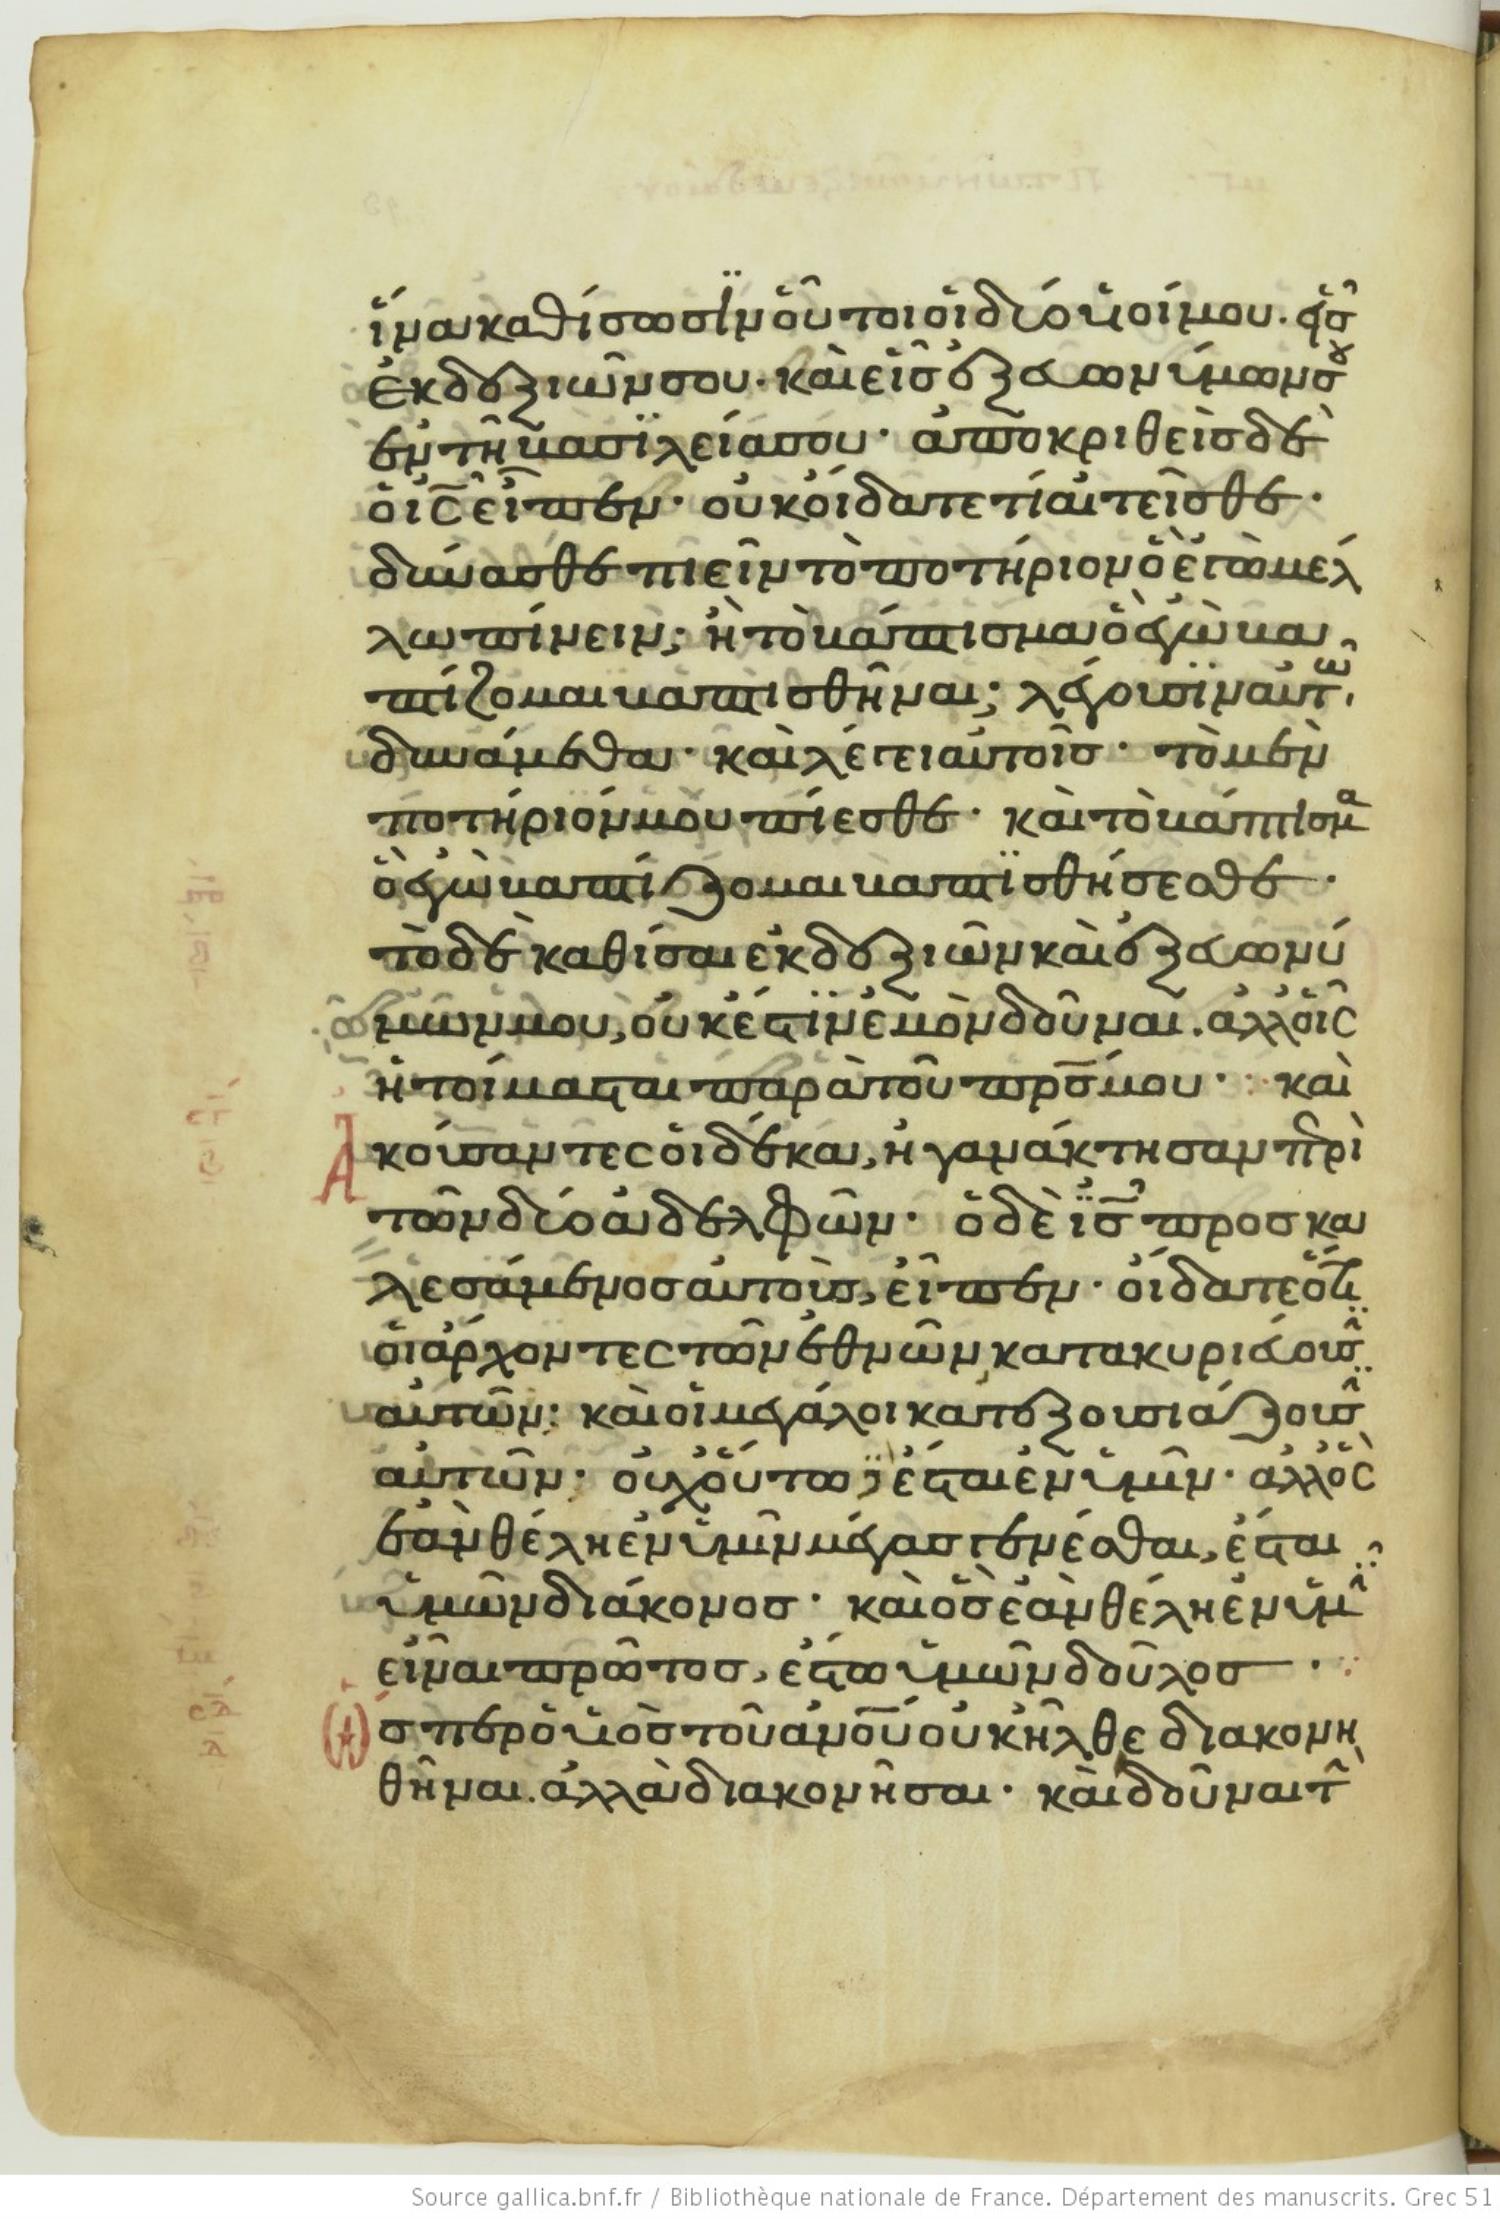 ἵνα καθίσωσϊν οὗτοι οἱ δύο υἱοί μου. εἷσ
ἐκ δεξιῶν σου· καὶ εἷσ ἐξ εὐωνύμων σου
ἐν τῆ βασϊλεία σου· ἀποκριθεὶσ δὲ
ὁ ις εἶπεν· οὐκ οἴδατε τί αἰτεῖσθε·
δύνασθε πιεῖν τὸ ποτήριον ὃ ἐγὼ μέλ
λω πίνειν; ἢ τὸ βάπτισμα ὃ ἐγὼ βα
πτίζομαι βαπτισθῆναι; λέγουσϊν αὐτῶ·
δυνάμεθα· καὶ λέγει αὐτοῖσ· τὸ μὲν
ποτήριόν μου πίεσθε· καὶ τὸ βάπτισμα
ὃ ἐγὼ βαπτίζομαι βαπτϊσθήσεσθε·
τὸ δὲ καθίσαι ἐκ δεξιῶν καὶ ἐξ εὐωνύ
μων μου, οὐκ ἔστϊν ἐμὸν δοῦναι. ἀλλ οἷς
ἡτοίμασται παρὰ τοῦ πρσ μου· καὶ
Ἀκούσαντες οἱ δέκα, ἠγανάκτησαν περὶ
τῶν δύο ἀδελφῶν· ὁ δὲ ϊσ προσκα
λεσάμενοσ αὐτοὺσ, εἶπεν· οἴδατε ὅτι
οἱ ἄρχοντες τῶν ἐθνῶν κατακυριεύουσϊν
αὐτῶν· καὶ οἱ μεγάλοι κατεξουσιάζουσϊν
αὐτῶν· οὐχ οὕτωσ ἔσται ἐν ὑμῖν· ἀλλ ὃς
ἐὰν θέλη ἐν ὑμῖν μέγασ γενέσθαι, ἔσται
ὑμῶν διάκονοσ· καὶ ὃσ ἐὰν θέλη ἐν ὑμῖν
εἶναι πρῶτοσ, ἔστω ὑμῶν δοῦλοσ·
ὥσπερ ὁ υἱὸσ τοῦ ανου οὐκ ἦλθε διακονη
θῆναι. ἀλλὰ διακονῆσαι· καὶ δοῦναι τὴν
Source gallica.bnf.fr / Bibliothèque nationale de France. Département des manuscrits. Grec 51